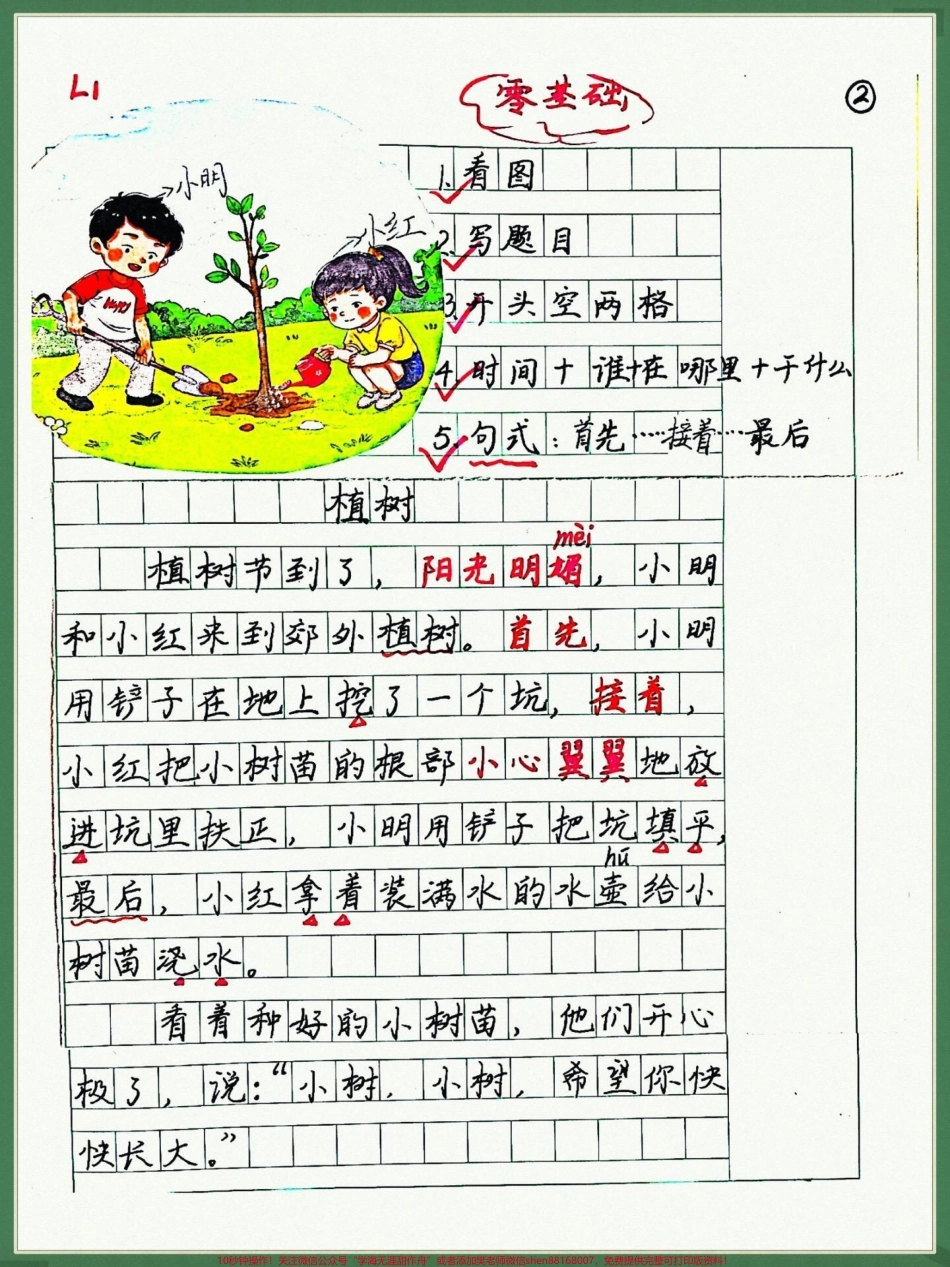 L1
零基础
②
小明
小红
1.看图
2.写题目
3.开头空两格
4.时间+谁+在哪里+干什么
5.句式:首先……接着…最后
植树
mèi
植树节到了,阳光明媚,小明
和小红来到郊外植树。首先,小明
用铲子在地上挖了一个坑,接着,
小红把小树苗的根部小心翼翼地放
进坑里扶正,小明用铲子把坑填平,
hú
最后,小红拿着装满水的水壶给小
树苗浇水。
看着种好的小树苗,他们开心
极了,说:“小树,小树,希望你快
快长大。”
10秒钟操作!关注微信公众号“学海无涯甜作舟”或者添加樊老师微信shen88168007,免费提供完整可打印版资料!